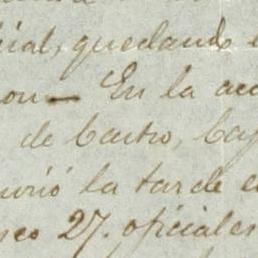 cial, quedando
on — En la ac
de Castro, bay
urió la tarde e
seo 27. oficiales